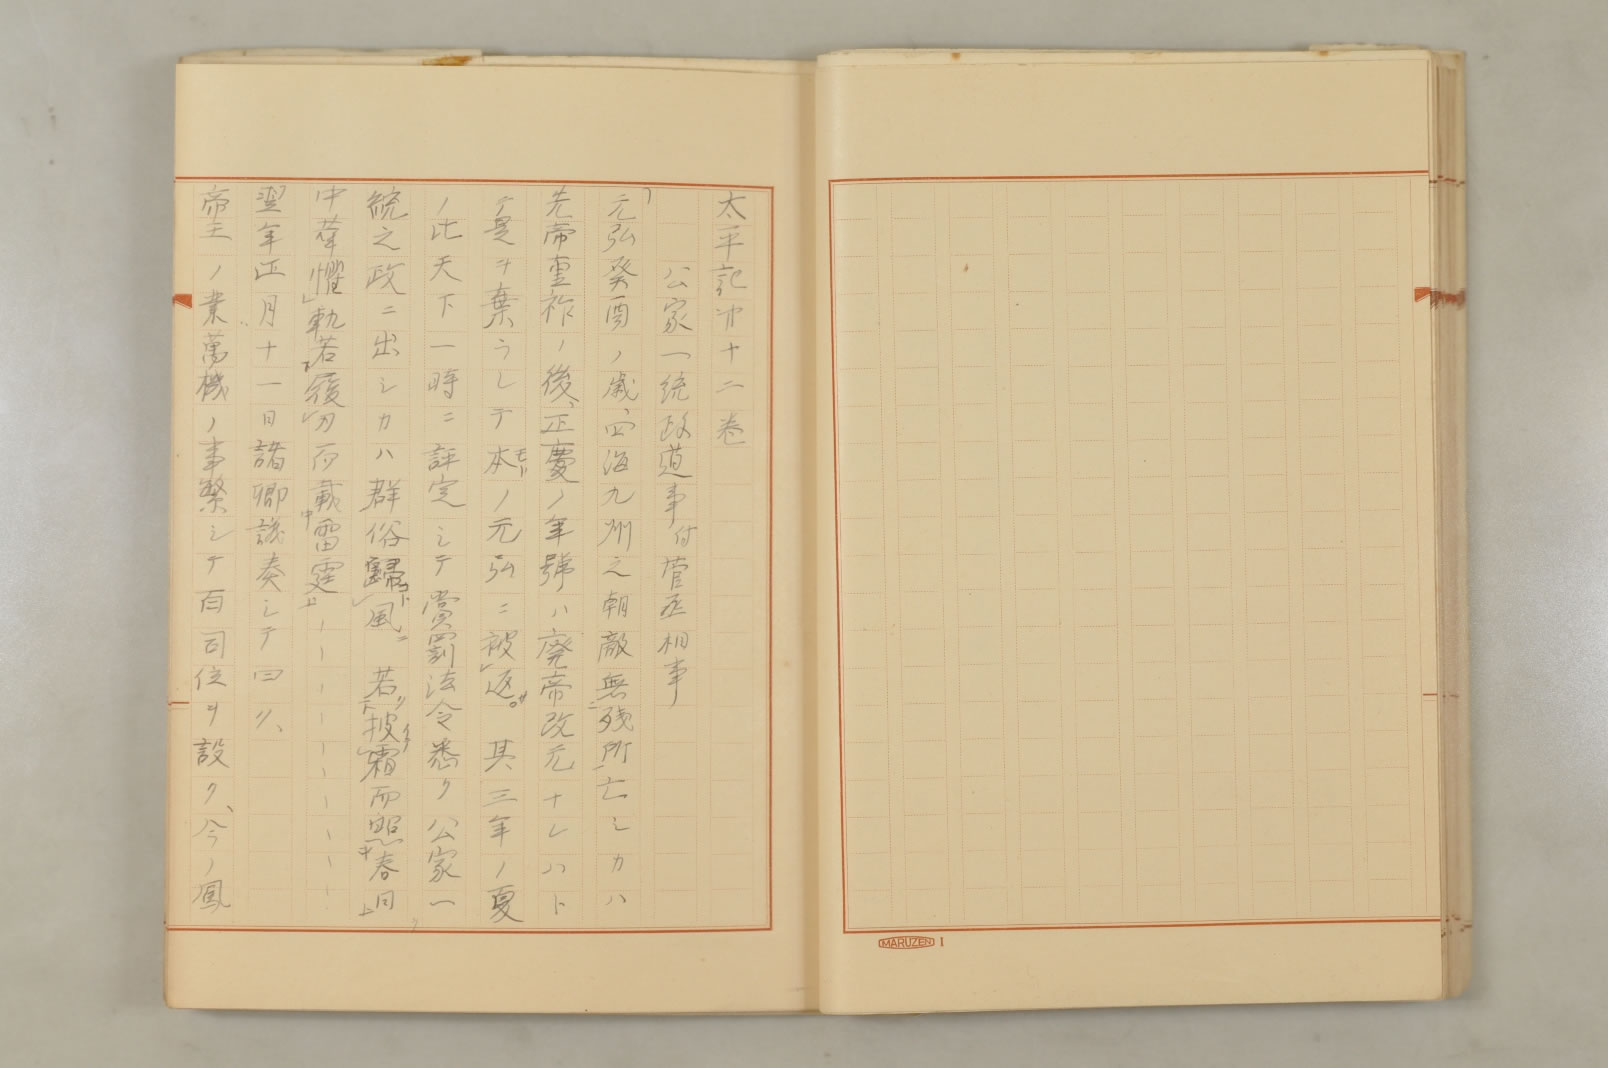 太平記卄十二巻
公家一統政道事付菅丞相事
元弘癸酉ノ歳、四海九州之朝敵無残所亡シカハ
先帝重祚ノ後、正慶ノ年號ハ廃帝改元ナレハト
テ是ヲ棄ラレテ本ノ元弘ニ被返。其三年ノ夏
ノ比天下一時ニ評定シテ賞罰法令悉ク公家一
統之政ニ出シカハ群俗歸風若披霜而照春日
中華懼軌若履刃而戴雷霆
翌年正月十一日諸卿議奏シテ曰ク、
帝王ノ業萬機ノ事繁シテ百司位ヲ設ク、今ノ鳳
MARUZEN 1